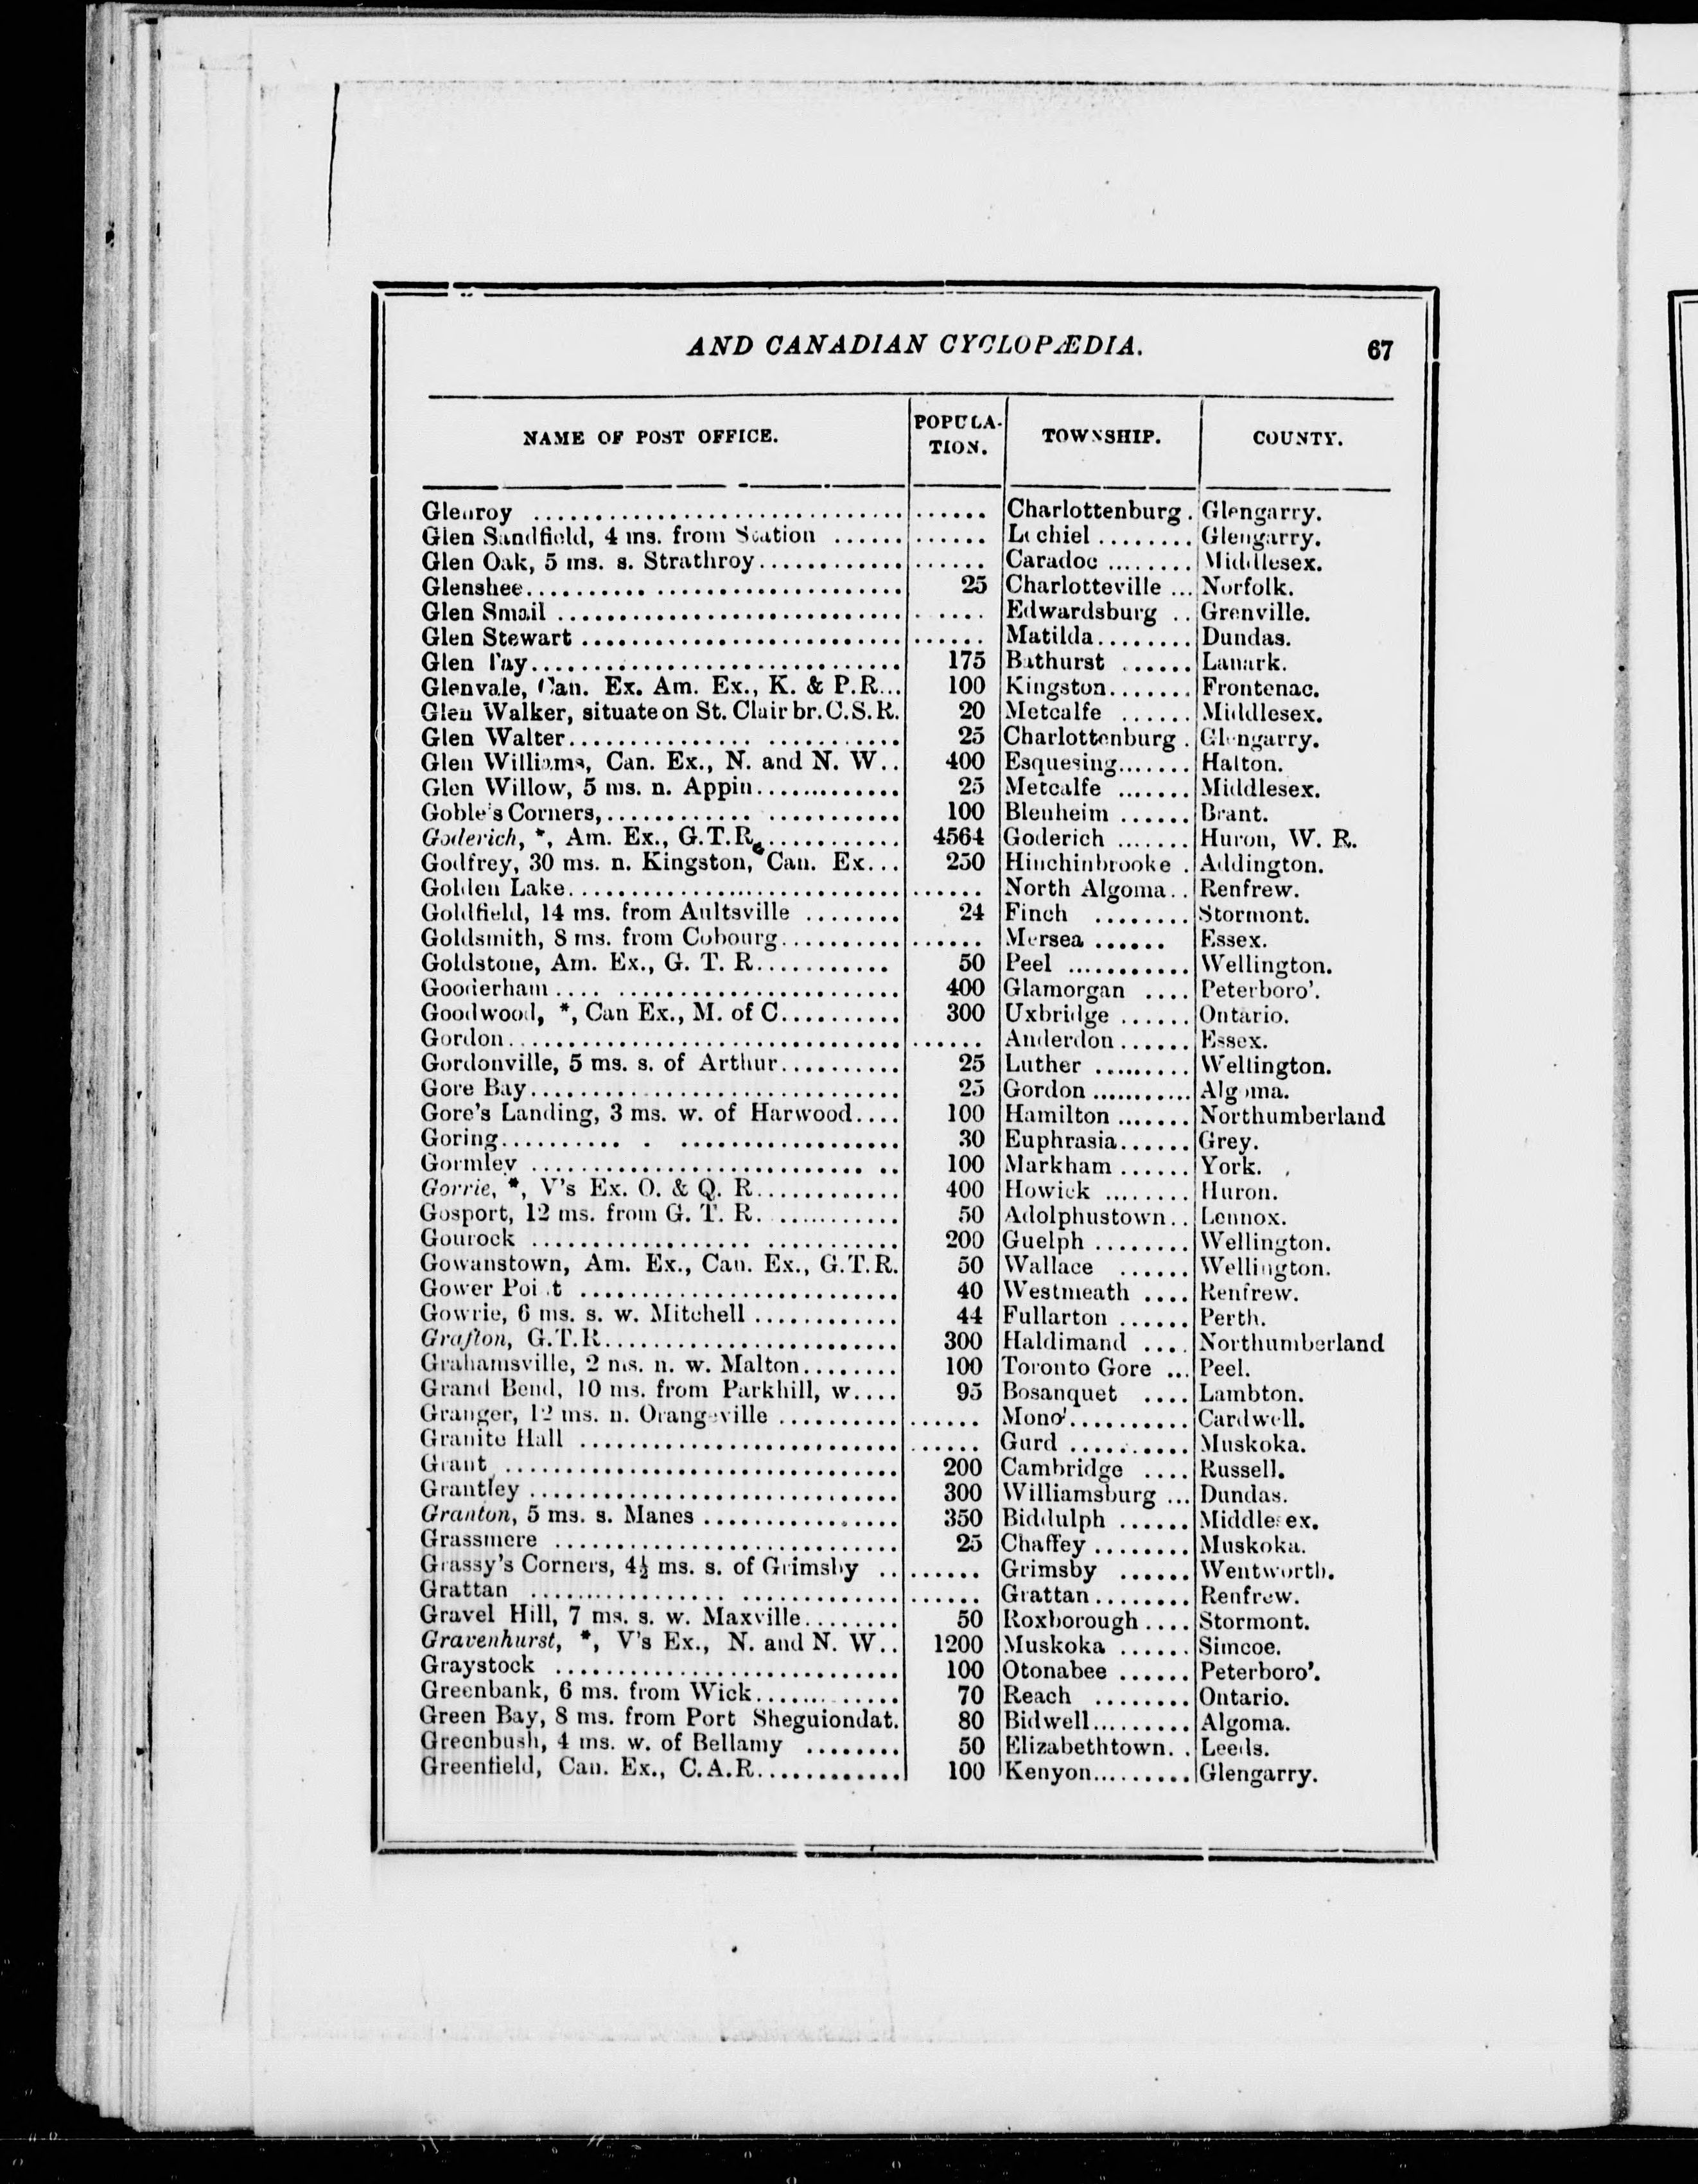 AND CANADIAN CYCLOPÆDIA. 67
NAME OF POST OFFICE. POPULA-TION. TOWNSHIP. COUNTY.
Glenroy .............................. ...... Charlottenburg . Glengarry.
Glen Sandfield, 4 ms. from Station ...... ...... Lochiel ........ Glengarry.
Glen Oak, 5 ms. s. Strathroy............ ...... Caradoc ........ Middlesex.
Glenshee.............................. 25 Charlotteville ... Norfolk.
Glen Smail ............................ ...... Edwardsburg .. Grenville.
Glen Stewart .......................... ...... Matilda........ Dundas.
Glen Tay.............................. 175 Bathurst ...... Lanark.
Glenvale, Can. Ex. Am. Ex., K. & P.R... 100 Kingston....... Frontenac.
Glen Walker, situate on St. Clair br. C.S.R. 20 Metcalfe ...... Middlesex.
Glen Walter........................... 25 Charlottenburg . Glengarry.
Glen Williams, Can. Ex., N. and N. W.. 400 Esquesing....... Halton.
Glen Willow, 5 ms. n. Appin............ 25 Metcalfe ....... Middlesex.
Goble's Corners,........................ 100 Blenheim ...... Brant.
Goderich, *, Am. Ex., G.T.R............ 4564 Goderich ....... Huron, W. R.
Godfrey, 30 ms. n. Kingston, Can. Ex... 250 Hinchinbrooke . Addington.
Golden Lake........................... ...... North Algoma.. Renfrew.
Goldfield, 14 ms. from Aultsville ........ 24 Finch ........ Stormont.
Goldsmith, 8 ms. from Cobourg.......... ...... Mersea ...... Essex.
Goldstone, Am. Ex., G. T. R........... 50 Peel ........... Wellington.
Gooderham ........................... 400 Glamorgan .... Peterboro'.
Goodwood, *, Can Ex., M. of C.......... 300 Uxbridge ...... Ontario.
Gordon................................ ...... Anderdon...... Essex.
Gordonville, 5 ms. s. of Arthur.......... 25 Luther ......... Wellington.
Gore Bay.............................. 25 Gordon ........... Algoma.
Gore's Landing, 3 ms. w. of Harwood.... 100 Hamilton ....... Northumberland
Goring................................ 30 Euphrasia...... Grey.
Gormley .............................. 100 Markham ...... York.
Gorrie, *, V's Ex. O. & Q. R............ 400 Howick ........ Huron.
Gosport, 12 ms. from G. T. R............ 50 Adolphustown.. Lennox.
Gourock .............................. 200 Guelph ........ Wellington.
Gowanstown, Am. Ex., Can. Ex., G.T.R. 50 Wallace ...... Wellington.
Gower Point .......................... 40 Westmeath .... Renfrew.
Gowrie, 6 ms. s. w. Mitchell ............ 44 Fullarton ...... Perth.
Grafton, G.T.R........................ 300 Haldimand .... Northumberland
Grahamsville, 2 ms. n. w. Malton........ 100 Toronto Gore ... Peel.
Grand Bend, 10 ms. from Parkhill, w.... 95 Bosanquet .... Lambton.
Granger, 12 ms. n. Orangeville .......... ...... Mono.......... Cardwell.
Granite Hall .......................... ...... Gurd .......... Muskoka.
Grant ................................ 200 Cambridge .... Russell.
Grantley .............................. 300 Williamsburg ... Dundas.
Granton, 5 ms. s. Manes ................ 350 Biddulph ...... Middlesex.
Grassmere ............................ 25 Chaffey ........ Muskoka.
Grassy's Corners, 4½ ms. s. of Grimsby .. ...... Grimsby ...... Wentworth.
Grattan .............................. ...... Grattan........ Renfrew.
Gravel Hill, 7 ms. s. w. Maxville........ 50 Roxborough .... Stormont.
Gravenhurst, *, V's Ex., N. and N. W.. 1200 Muskoka ...... Simcoe.
Graystock ............................ 100 Otonabee ...... Peterboro'.
Greenbank, 6 ms. from Wick............ 70 Reach ........ Ontario.
Green Bay, 8 ms. from Port Sheguiondat. 80 Bidwell......... Algoma.
Greenbush, 4 ms. w. of Bellamy ........ 50 Elizabethtown. . Leeds.
Greenfield, Can. Ex., C.A.R............. 100 Kenyon......... Glengarry.